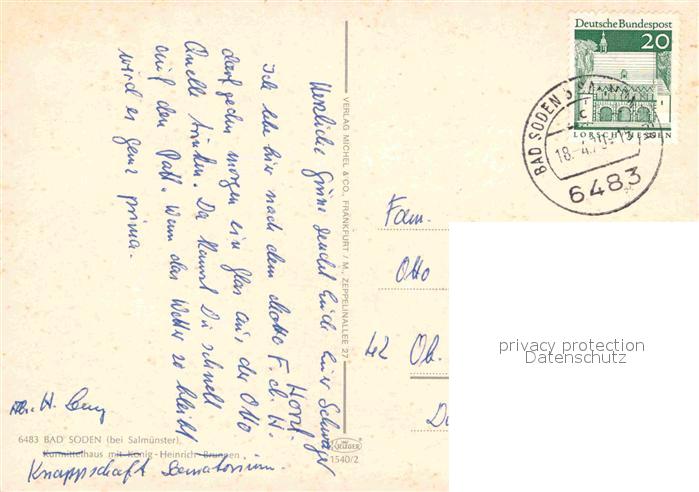 Herzliche Grüße sendet Euch Euer Schwager
Horst
Ich lebe hier nach dem Motto F. d. H.
darf jeden morgen ein Glas aus der Otto
Quelle trinken. Da kannst Du schnell
auf den Pott. Wenn das Wetter so bleibt
wird es ganz prima.
Abs. H.
6483 BAD SODEN (bei Salmünster),
Kurmittelhaus mit König-Heinrich-Brunnen
Knappschaft Sanatorium.
VERLAG MICHEL & CO., FRANKFURT / M., ZEPPELINALLEE 27
KRÜGER
1540/2
Deutsche Bundespost
20
LORSCH/HESSEN
BAD SODEN
18.-4.70-13
6483
Fam.
Otto
42 Ob.
privacy protection
Datenschutz